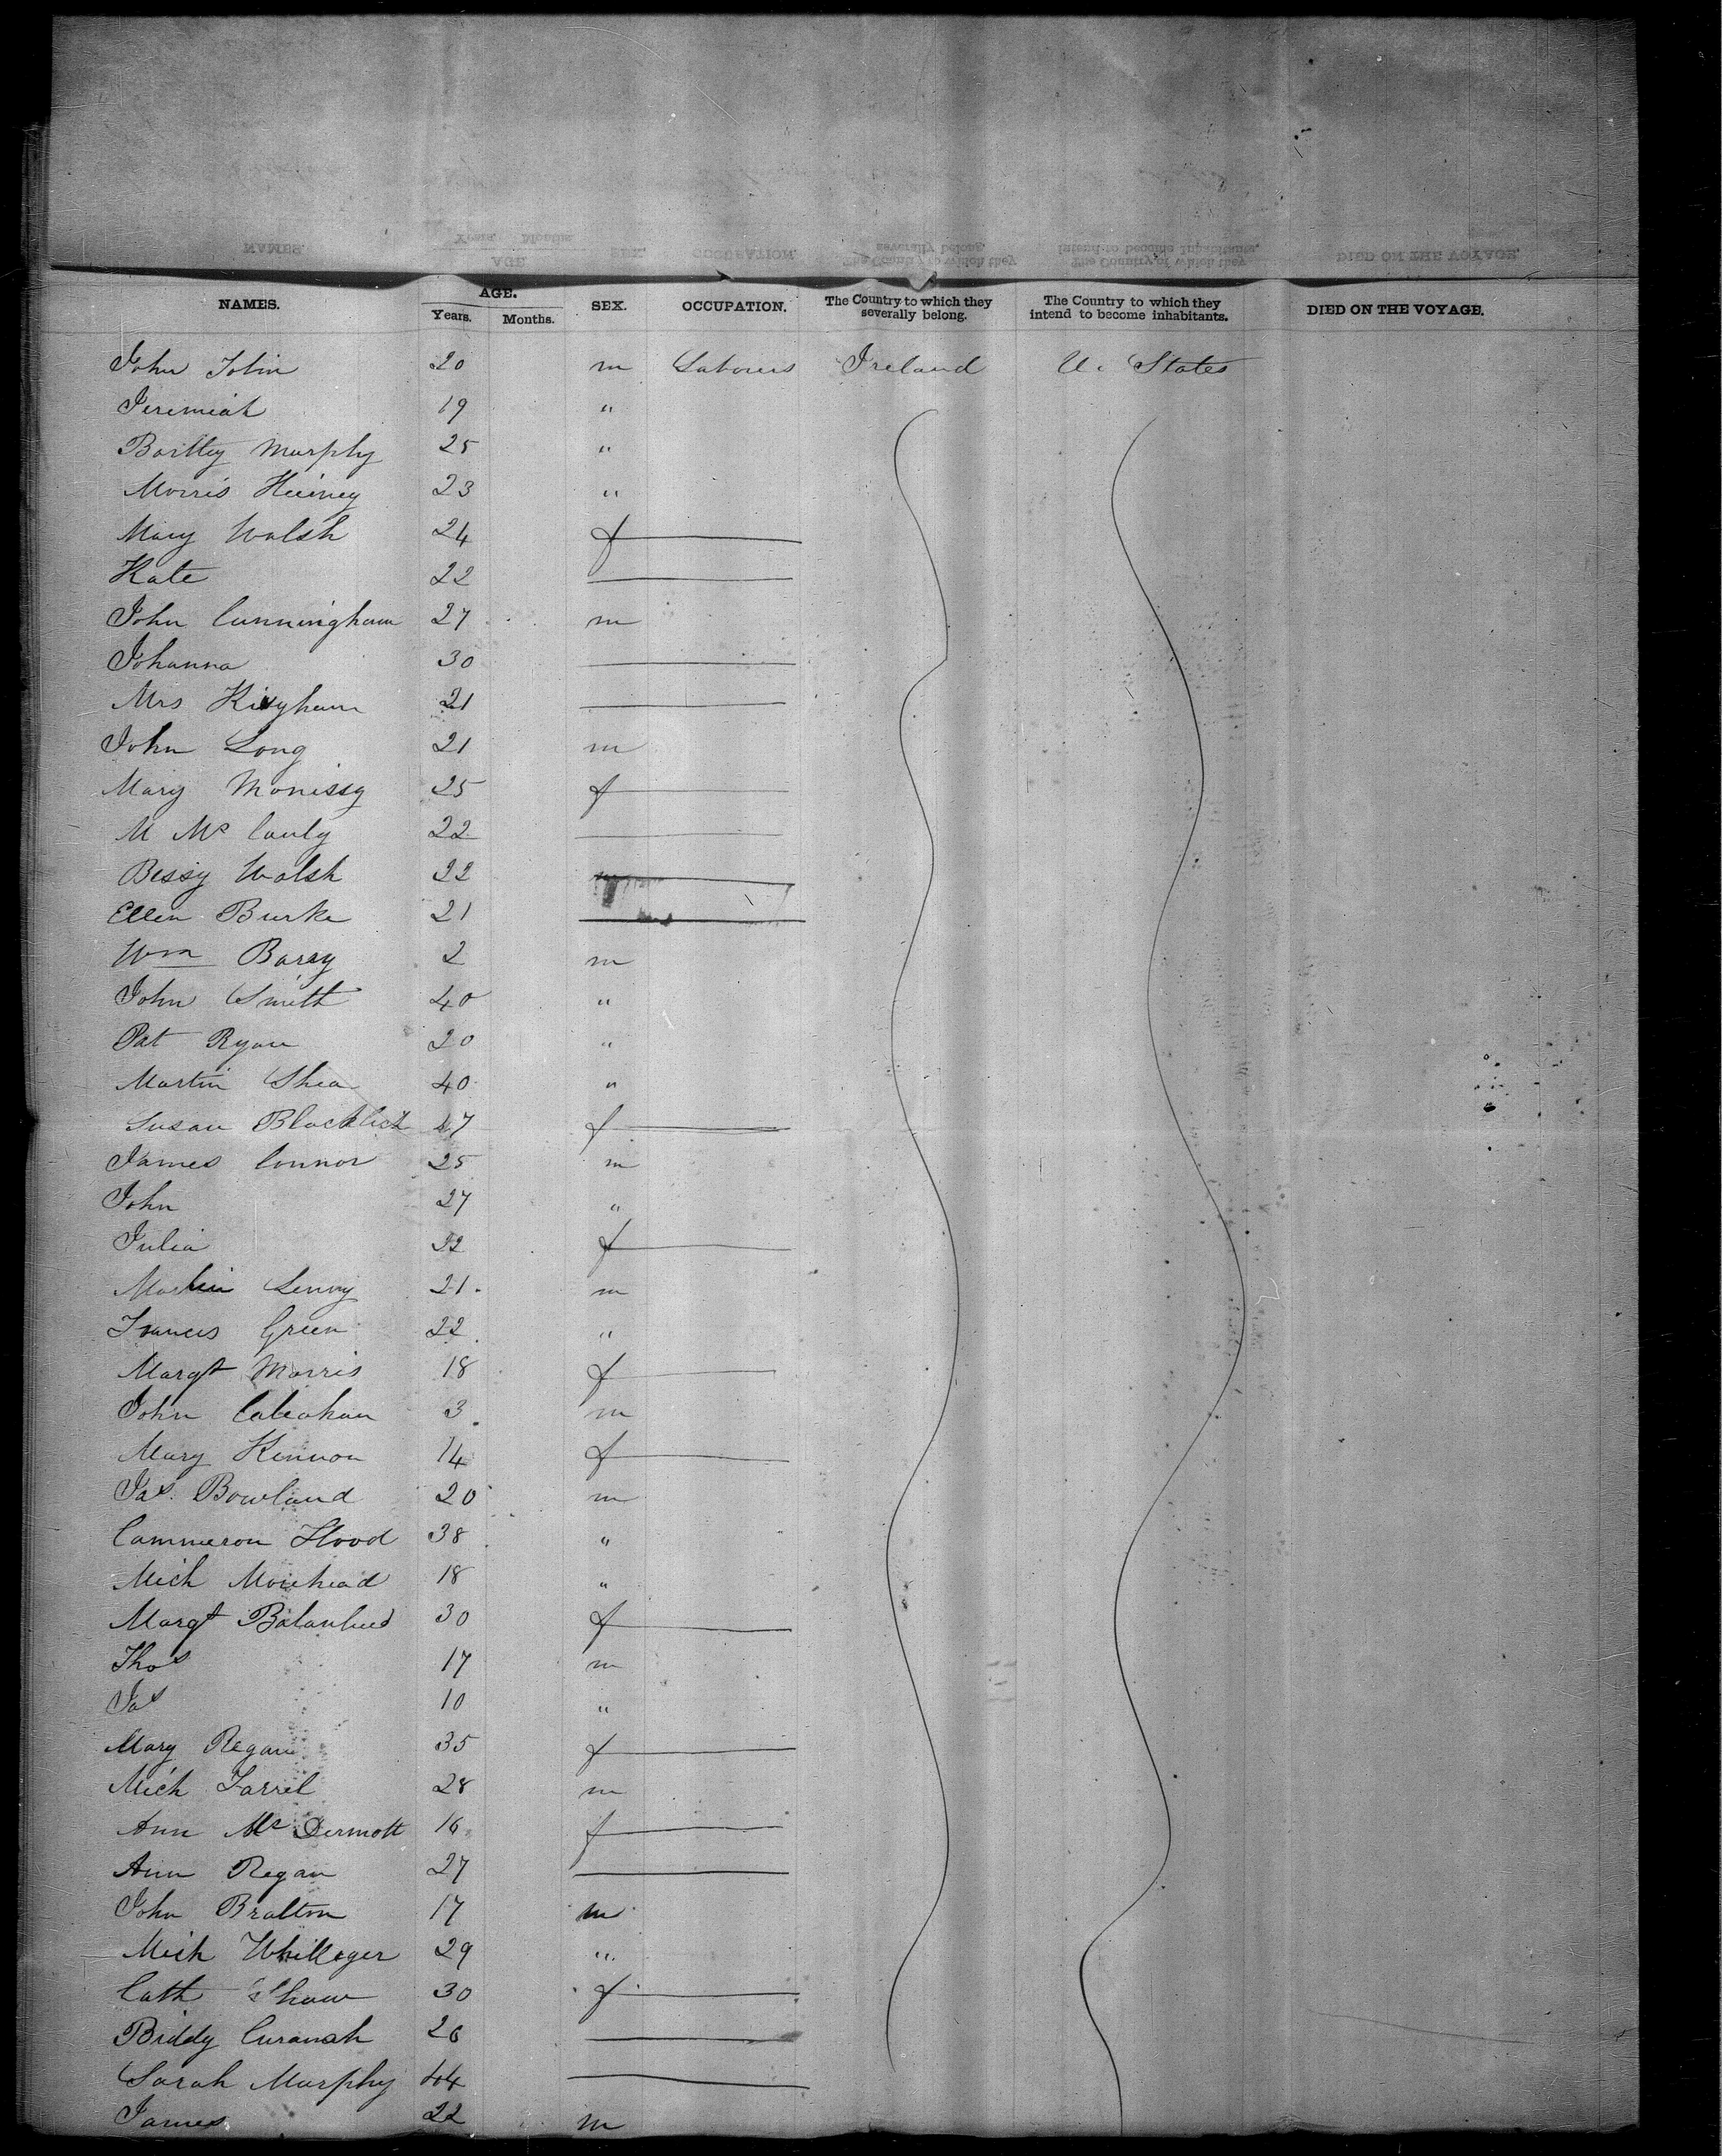 NAMES. AGE. Years. Months. SEX. OCCUPATION. The Country to which they severally belong. The Country to which they intend to become inhabitants. DIED ON THE VOYAGE.
John Tobin 20 m Laborers Ireland U. States
Jeremiah 19 "
Bartley Murphy 25 "
Morris 23 "
Mary Walsh 24 f
Kate 22
John Cunningham 27 m
Johanna 30
Mrs 21
John Long 21 m
Mary 25 f
M Mc Cauly 22
Bessy Walsh 22
Ellen Burke 21
Wm Barry 2 m
John Smith 40 "
Pat Ryan 20 "
Martin Shea 40 "
Susan 27 f
James Connor 25 m
John 27 "
Julia 22 f
Martin 21 m
Francis Green 22 "
Margt Morris 18 f
John 3 m
Mary Kennon 14 f
Jas. Bowland 20 m
Cammeron Flood 38 "
Mich Morehead 18 "
Margt 30 f
Thos 17 m
Jas 10 "
Mary Regan 35 f
Mich Farrel 28 m
Ann Mc Dermott 16 f
Ann Regan 27
John Bratton 17 m
Mich 29 "
Cath Shaw 30 f
Biddy 26
Sarah Murphy 44
James 22 m